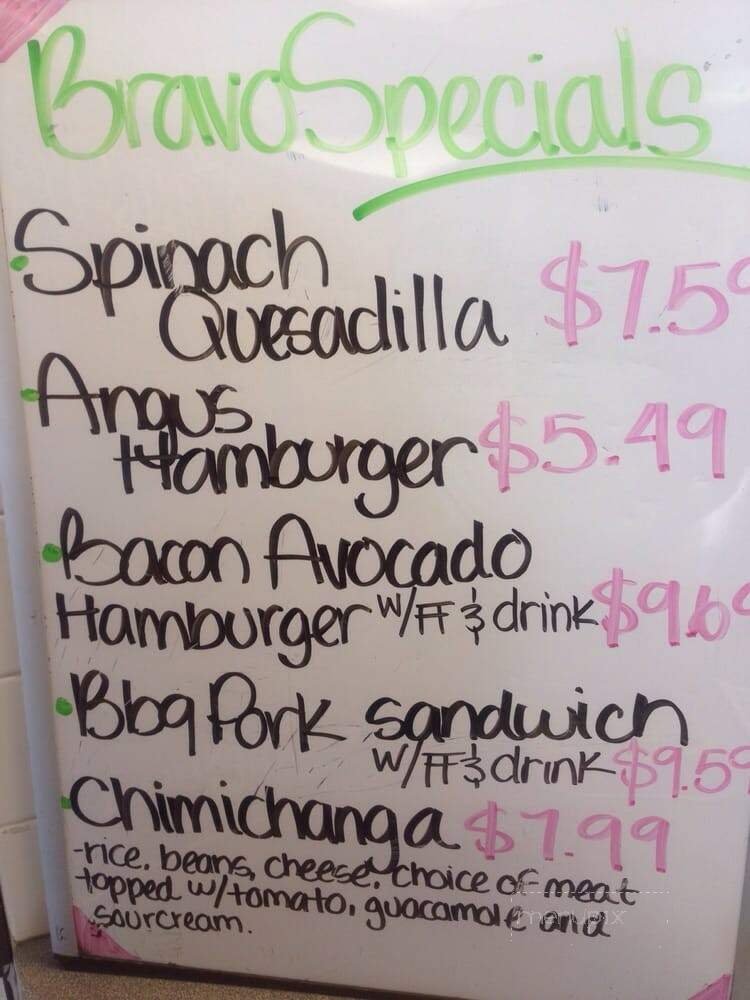 Bravo Specials
Spinach
Quesadilla $7.5
Angus
Hamburger $5.49
Bacon Avocado
Hamburger w/FF & drink $9.6
Bbq Pork sandwich
w/FF & drink $9.5
Chimichanga $7.99
-rice, beans, cheese, choice of meat
topped w/tomato, guacamole and
sourcream.
menupix